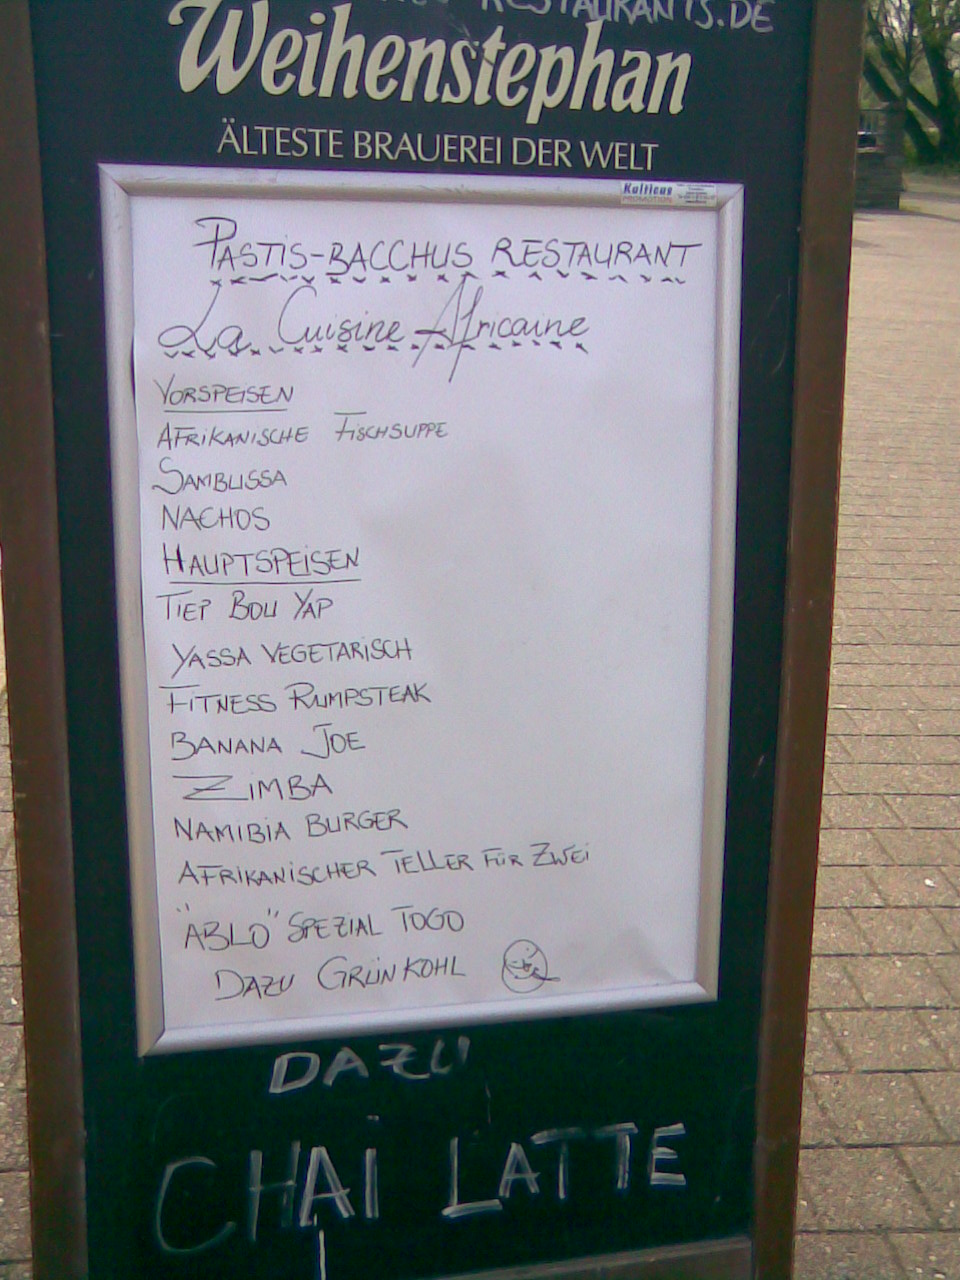 RESTAURANTS.DE
Weihenstephan
ÄLTESTE BRAUEREI DER WELT
Kalticus
PROMOTION
PASTIS-BACCHUS RESTAURANT
La Cuisine Africaine
VORSPEISEN
AFRIKANISCHE FISCHSUPPE
SAMBUSSA
NACHOS
HAUPTSPEISEN
TIEP BOU YAP
YASSA VEGETARISCH
FITNESS RUMPSTEAK
BANANA JOE
ZIMBA
NAMIBIA BURGER
AFRIKANISCHER TELLER FÜR ZWEI
"ABLO" SPEZIAL TOGO
DAZU GRÜNKOHL
DAZU
CHAI LATTE